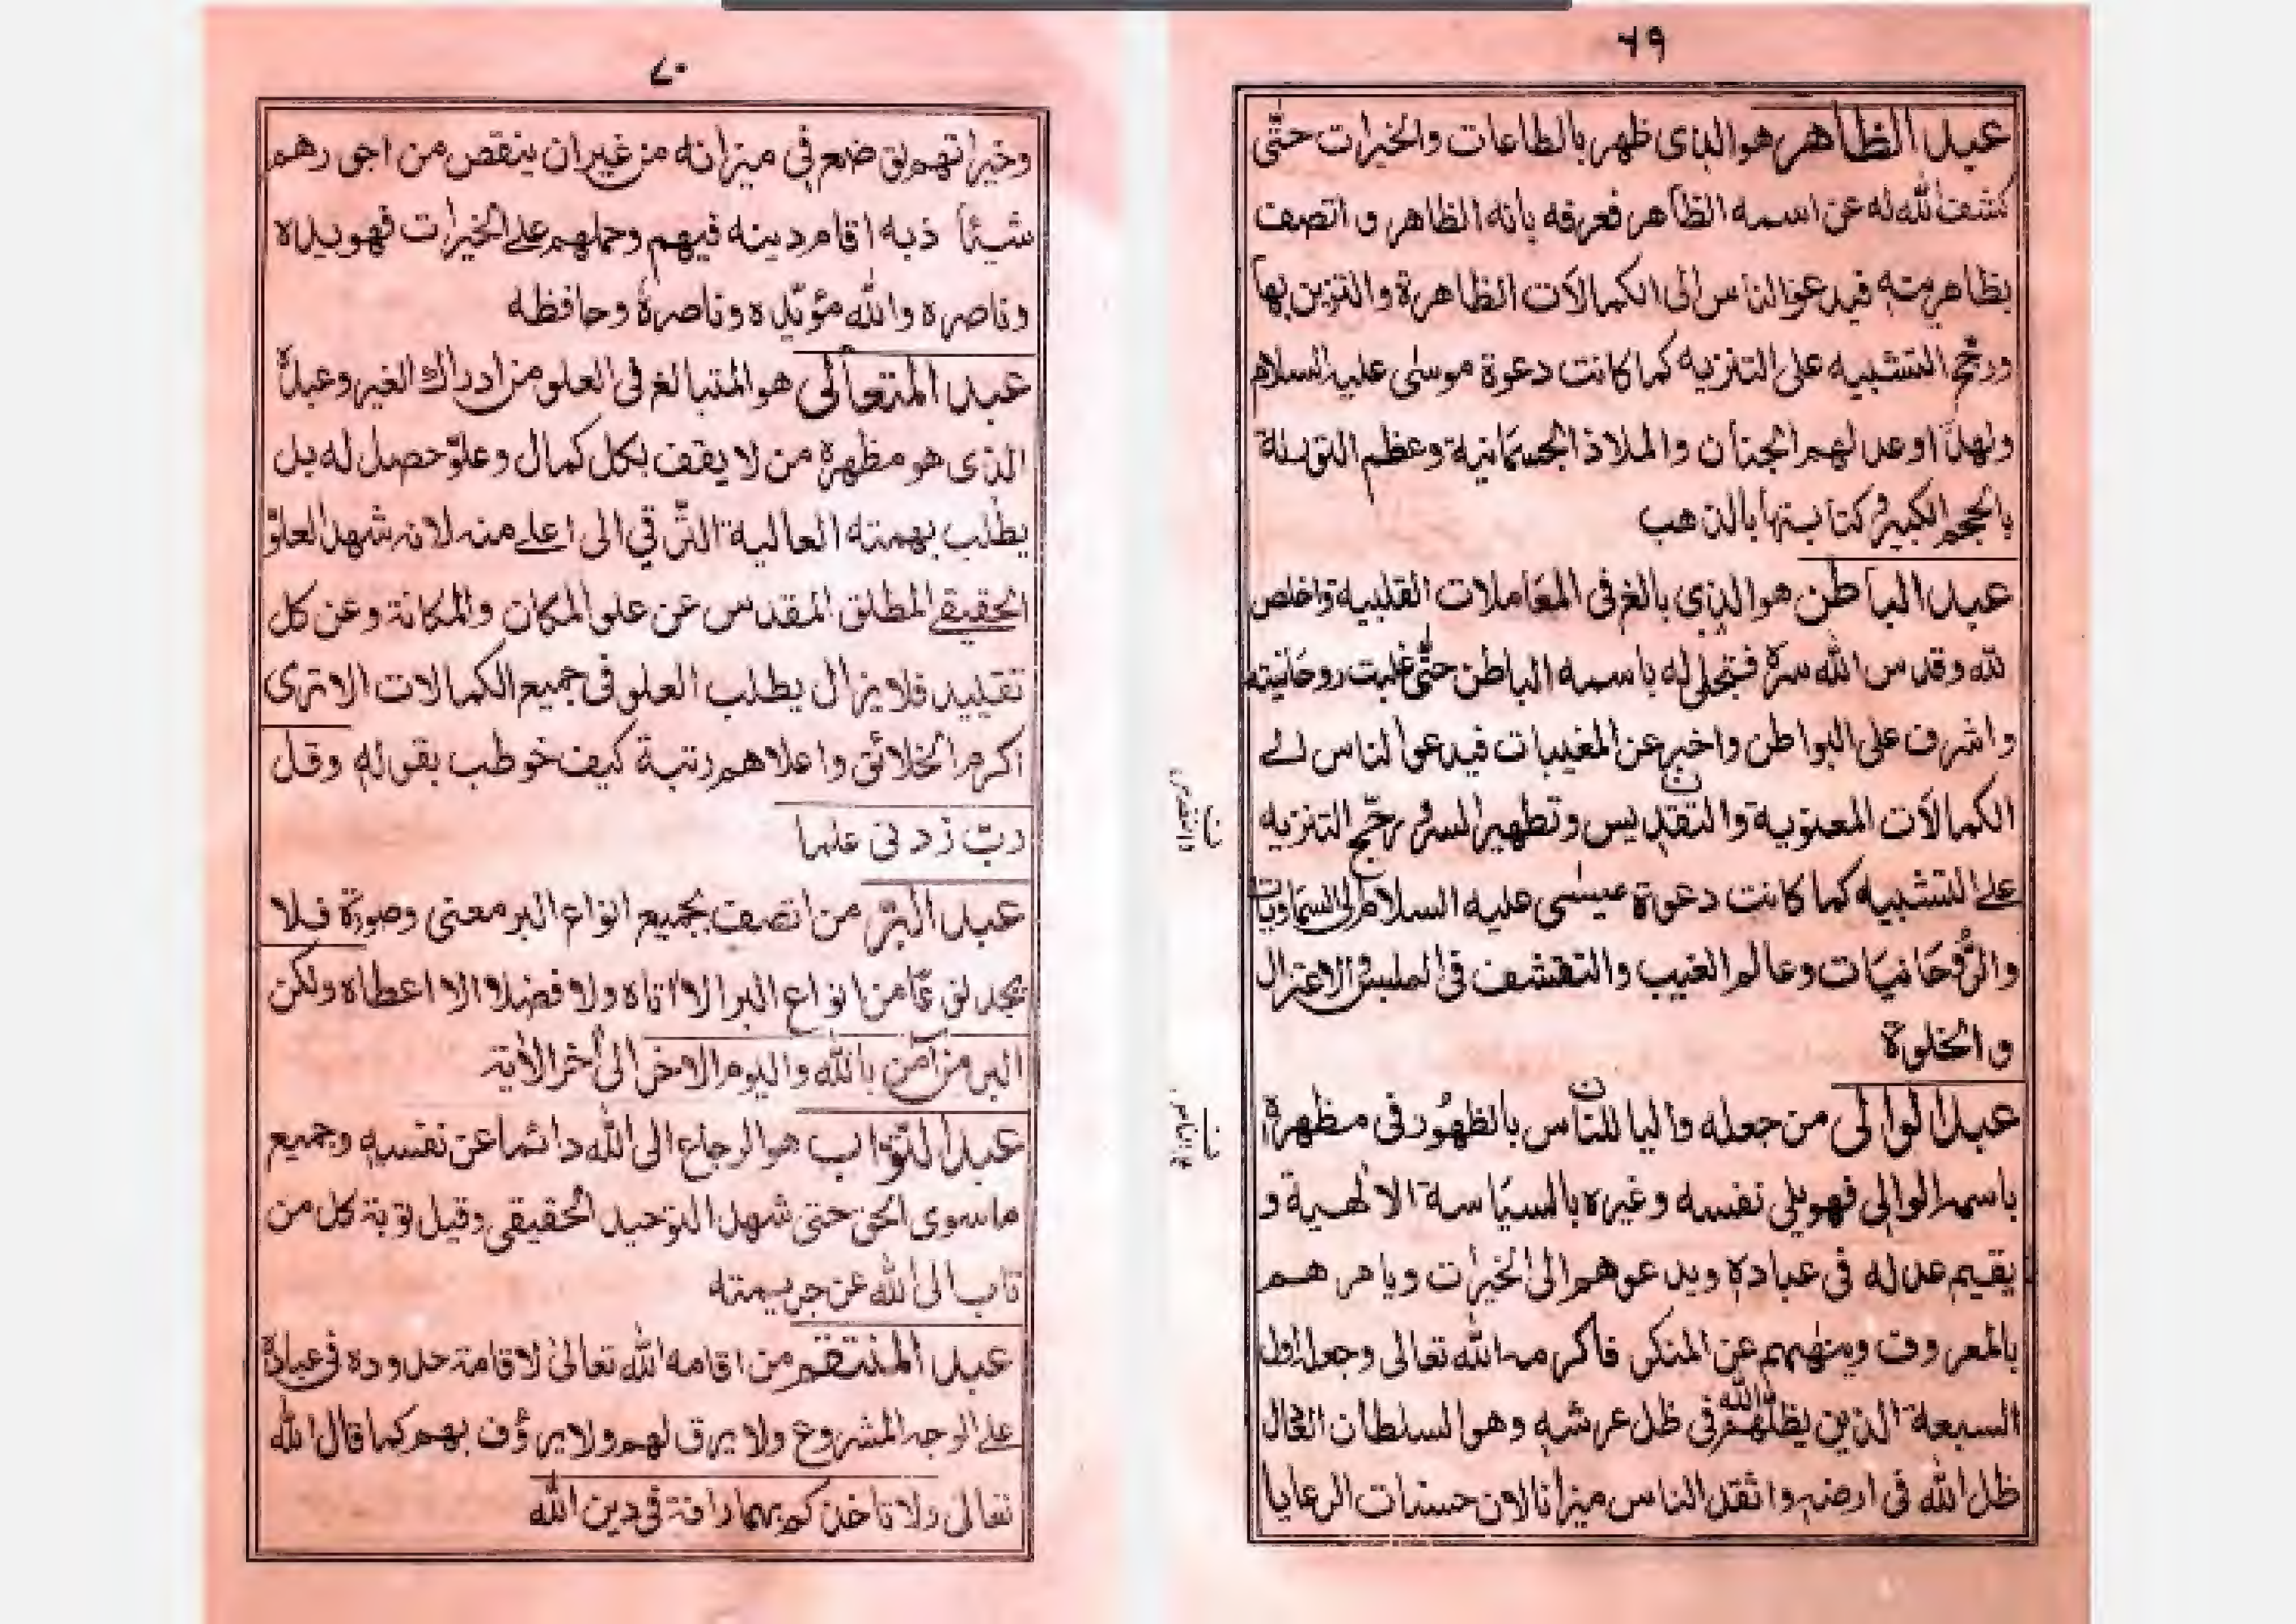 ٦٩
عبد الظاهر هو الذى ظهر بالطاعات والخيرات حتّٰى
كشف الله له عن اسمه الظاهر فعرفه بانه الظاهر و اتصف
بظاهريته فيدعو الناس الى الكمالات الظاهرة والتزين بها
ورجّح التشبيه على التنزيه كما كانت دعوة موسٰى عليه السلام
ولهذا اوعد لهم الجنان والملاذ الجسمانية وعظم التورىة
بالحجم الكبير و كتابتها بالذهب
عبد الباطن هو الذي بالغ فى المعاملات القلبية واخلص
لله وقدس الله سرّه فتجلى له باسمه الباطن حتّى غلبت روحانيته
واشرف على البواطن واخبر عن المغيبات فيدعوا لناس الے
الكمالات المعنوية والتقديس وتطهير السر و رجّح التنزيه
علے التشبيه كما كانت دعوة عيسٰى عليه السلام الى السماويات
والرّوحانيّات وعالم الغيب والتقشف فى الملبس والاعتزال
والخلوة
عبد الوالى من جعله واليا للنّاس بالظهُور فى مظهرة
باسمه الوالى فهو يلى نفسه وغيره بالسيَاسة الالٰهية و
يقيم عدله فى عباده ويدعوهم الى الخيرات ويامرهم
بالمعروف وينهٰهم عن المنكر فاكرمه الله تعالى وجعله اول
السبعة الذين يظلهم الله فى ظل عرشه وهو السلطان العادل
ظل الله فى ارضه واثقل الناس ميزانا لان حسنات الرعايا
٧٠
وخيراتهم توضع في ميزانه من غير ان ينقص من اجورهم
شيئاً ذبه اقام دينه فيهم وحملهم على الخيرات فهو يده
وناصره والله مؤيّده وناصرهٗ وحافظه
عبد المتعالى هو المتبالغ فى العلو من ادراك الغير وعبدٌ
الذى هو مظهرهٗ من لا يقف بكل كمال وعلوّ حصل له بل
يطلب بهمته العالية الترّقي الى اعلے منه لانه شهد العلوّ
الحقيقے المطلق المقدس عن علو المكان والمكانة وعن كل
تقليد فلا يزال يطلب العلو فى جميع الكمالات الا ترى
اكرم الخلائق واعلاهم رتبة كيف خوطب بقوله وقل
ربّ زدنى علما
عبد البرّ من اتصف بجميع انواع البر معنى وصورة فلا
يجد نوعًا من انواع البر الا اتاه ولا فضلا الا اعطاه ولكن
البر من آمن بالله واليوم الاخر الى اٰخر الاٰية
عبد التوّاب هو الرجاع الى الله دائما عن نفسه وجميع
ما سوى الحق حتى شهد التوحيد الحقيقى وقيل توبة كل من
تاب الى الله عن جريمته
عبد المنتقم من اقامه الله تعالىٰ لاقامة حدوده فى عباده
علے الوجه المشروع ولا يرق لهم ولا يرؤف بهم كما قال الله
تعالى ولا تاخذكم بهما رافة فى دين الله